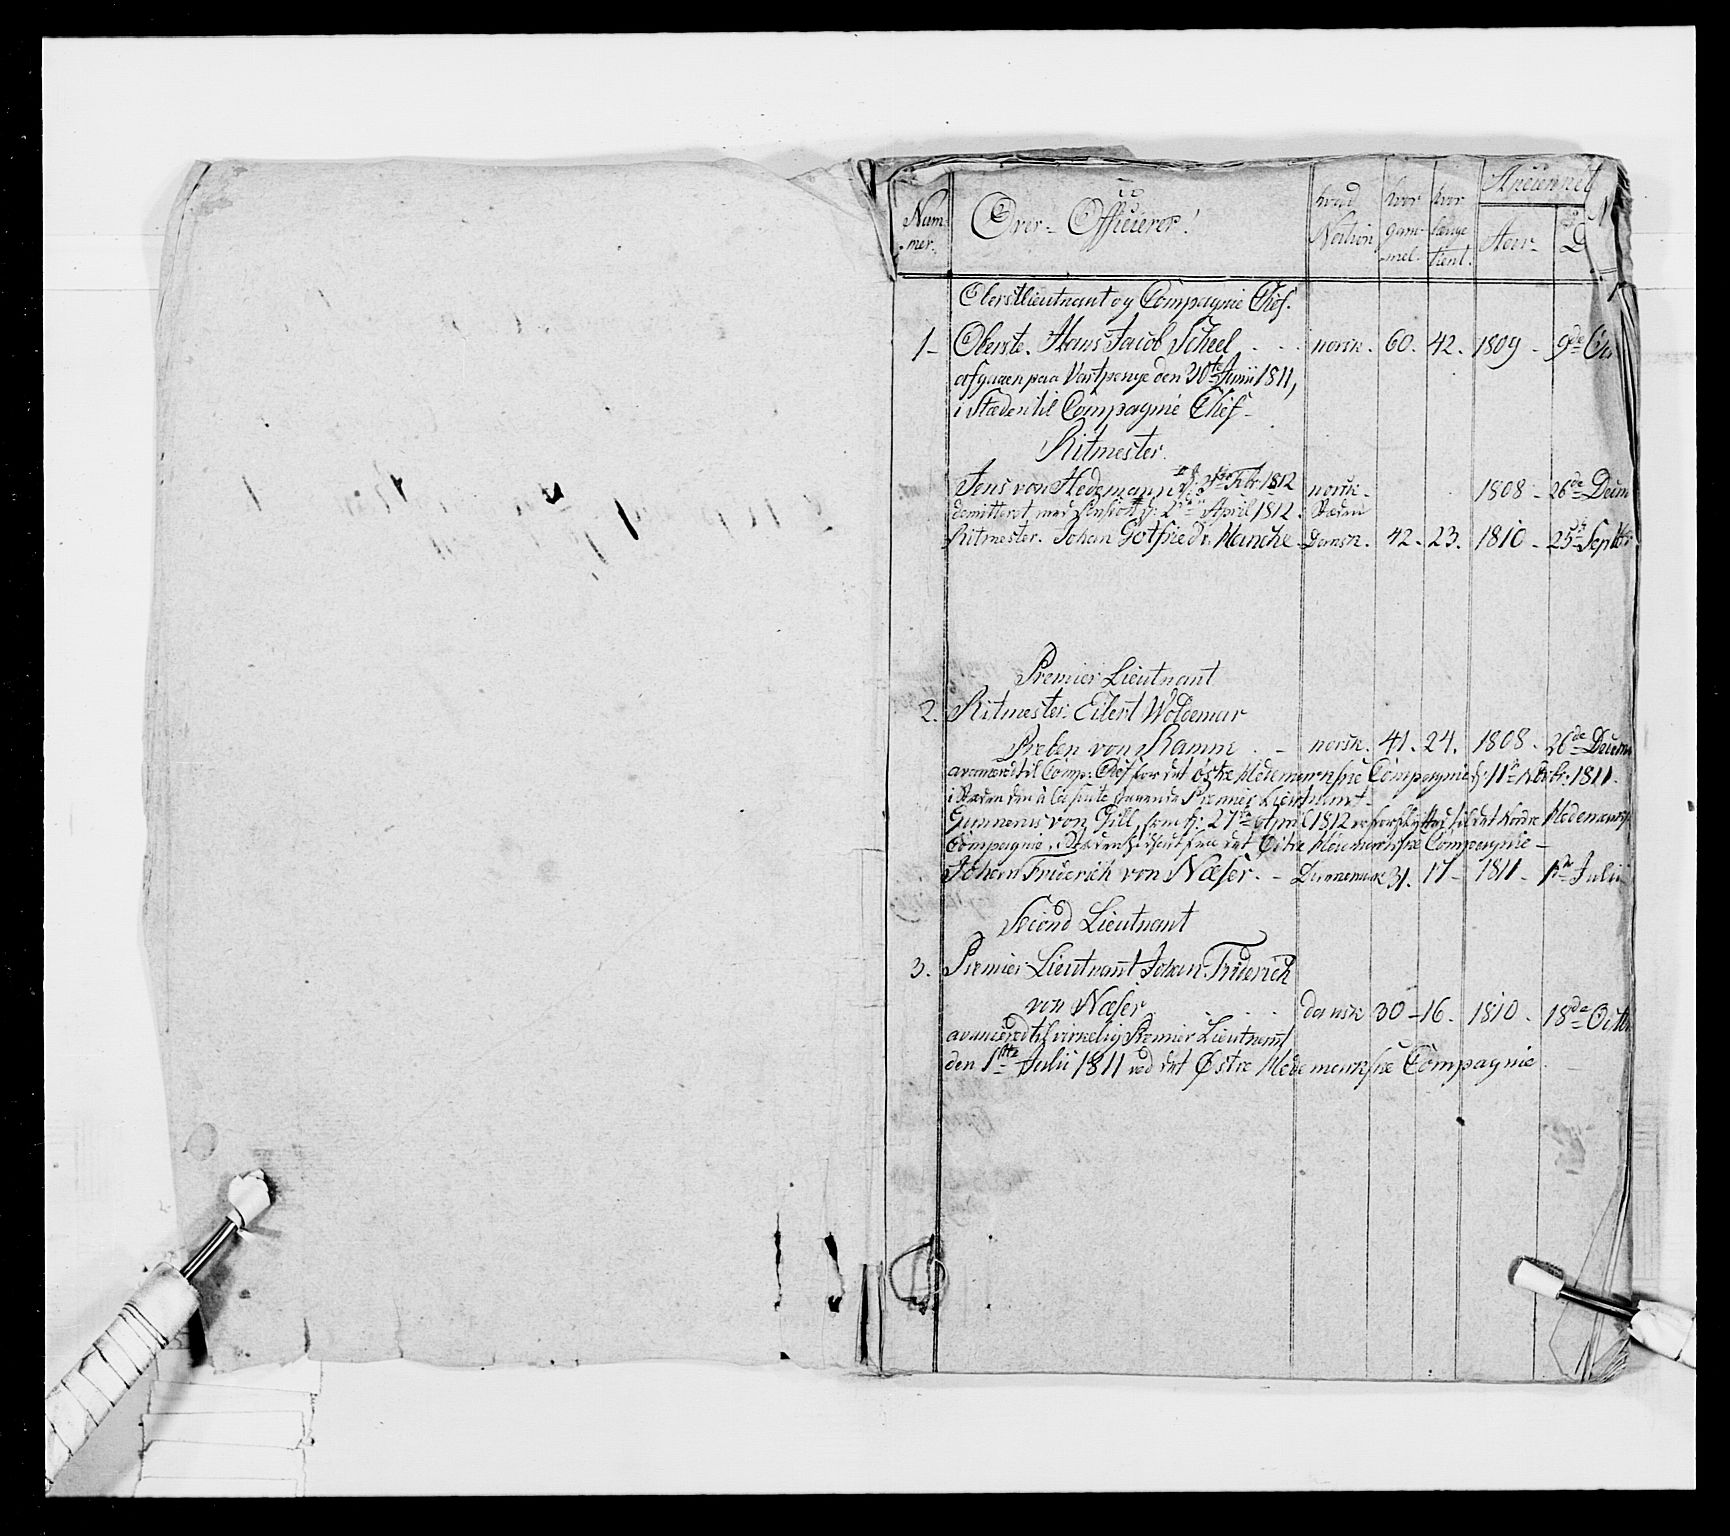 Num-
mer.
Over-Officierer!
hvad
Nation
hvor
gam-
mel.
hvor
længe
tient.
Anciennit
Aar
D
Oberstlieutnant og Compagnie Chef.
1- Oberste. Hans Jacob Scheel norsk. 60. 42. 1809 - 9de
afgaaen paa Vartpenge den 30te Junii 1811,
i Stæden til Compagnie Chef-
Ritmester.
Jens von Hedemann Febr 1812 norsk. 1808 - 26de Decem
demitteret med Pension April 1812. Stæden
Ritmester. Johan Gotfriedr. Hancke Dansk. 42. 23. 1810 - 25de Septbr
Premier Lieutnant
2. Ritmester. Eilert Woldemar
Preben von Ramm norsk. 41. 24. 1808. 26de Decem
avanceret til Comp: Chef for det østre Hedemarkske Compagnie d: 11te Novbr: 1811.
i Stæden den Premier Lieutnant
Gunnerus von Gill, som d: 27de April 1812 er forflyttet til det Nordre Hedemarks
Compagnie, i Stæden fra det Østre Hedemarkske Compagnie-
Johan Friderich von Næser. - Dannemark 31. 17- 1811 - 1te Julii
Second Lieutnant
3. Premier Lieutnant Johan Friderich
von Næser dansk 30-16. 1810. 18de Octbr
avanceret til virkelig Premier Lieutnant
den 1ste Julii 1811 ved det Østre Hedemarkske Compagnie